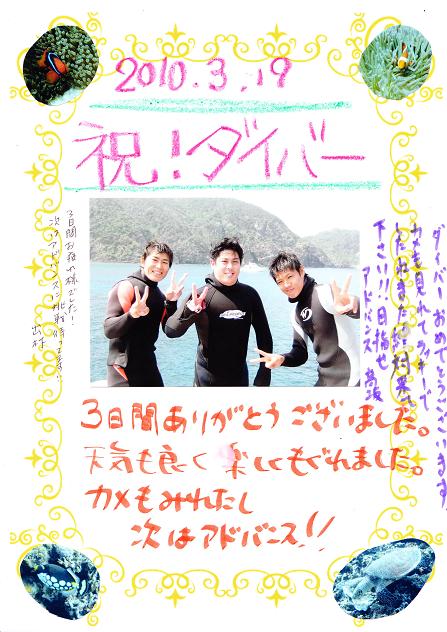 2010.3.19
祝！ダイバー
ダイバーおめでとうございます
カメも見れてラッキーで
したね また絶対来て
下さい!!! 目指せ
アドバンス
3日間お疲れ様でした!
次はアドバンス 待ってます!!
3日間ありがとうございました。
天気も良く楽しくもぐれました。
カメもみれたし
次はアドバンス!!